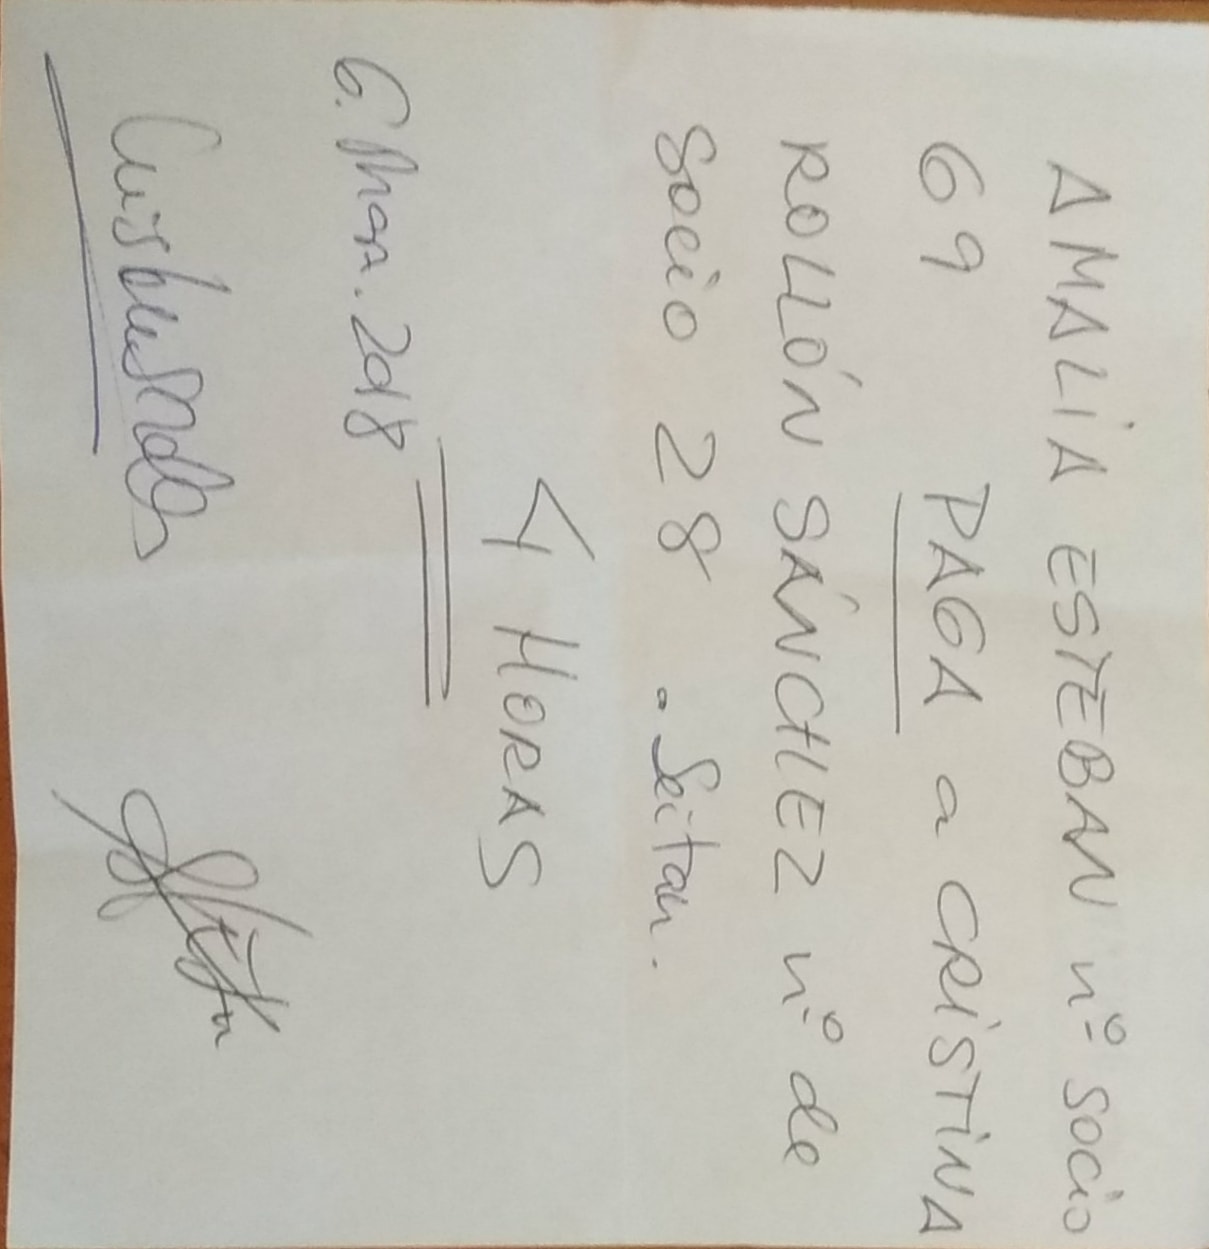 AMALIA ESTEBAN nº socio
69 PAGA a CRISTINA
ROLLÓN SÁNCHEZ nº de
Socio 28 . Seitan.
4 HORAS
6. Mar. 2018